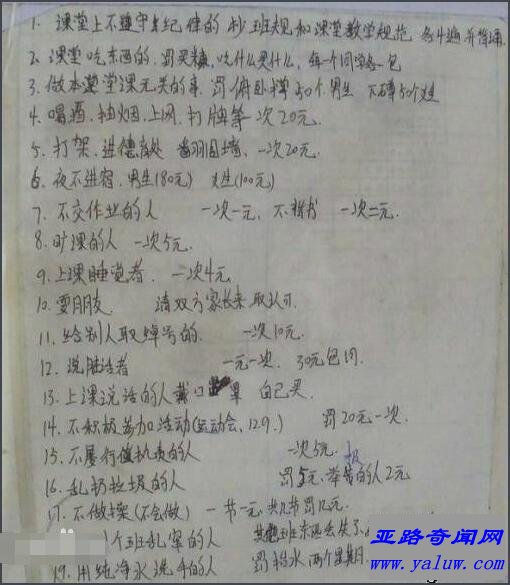 1. 课堂上不遵守纪律的 抄班规和课堂教学规范 各十遍 并背诵
2. 课堂吃东西的, 罚买糖, 吃什么买什么, 每一个同学各一包
3. 做本堂课无关的事 罚俯卧撑50个 男生 下蹲50个女生
4. 喝酒、抽烟、上网、打牌等一次20元.
5. 打架、进德育处 翻围墙、一次20元.
6. 夜不进宿, 男生(180元) 女生(100元)
7. 不交作业的人 一次一元, 不背书 一次二元.
8. 旷课的人 一次5元.
9. 上课睡觉者. 一次4元
10. 耍朋友 请双方家长来取认可.
11. 给别人取绰号的. 一次10元.
12. 说脏话者 一元一次. 30元包月.
13. 上课说话的人戴口罩 自己买.
14. 不积极参加活动(运动会、129.) 罚20元一次.
15. 不履行值执责的人 一次5元.
16. 乱扔垃圾的人 罚5元. 举报的人2元
17. 不做操(不会做) 一节一元 共几节罚几元.
个班乱窜的人 班东西丢失了
19. 用纯净水洗手的人 罚抬水两个星期
亚路奇闻网
www.yaluw.com